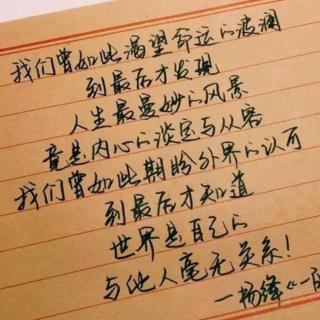 我们曾如此渴望命运的波澜
到最后才发现
人生最曼妙的风景
竟是内心的淡定与从容
我们曾如此期盼外界的认可
到最后才知道
世界是自己的
与他人毫无关系!
—杨绛《一